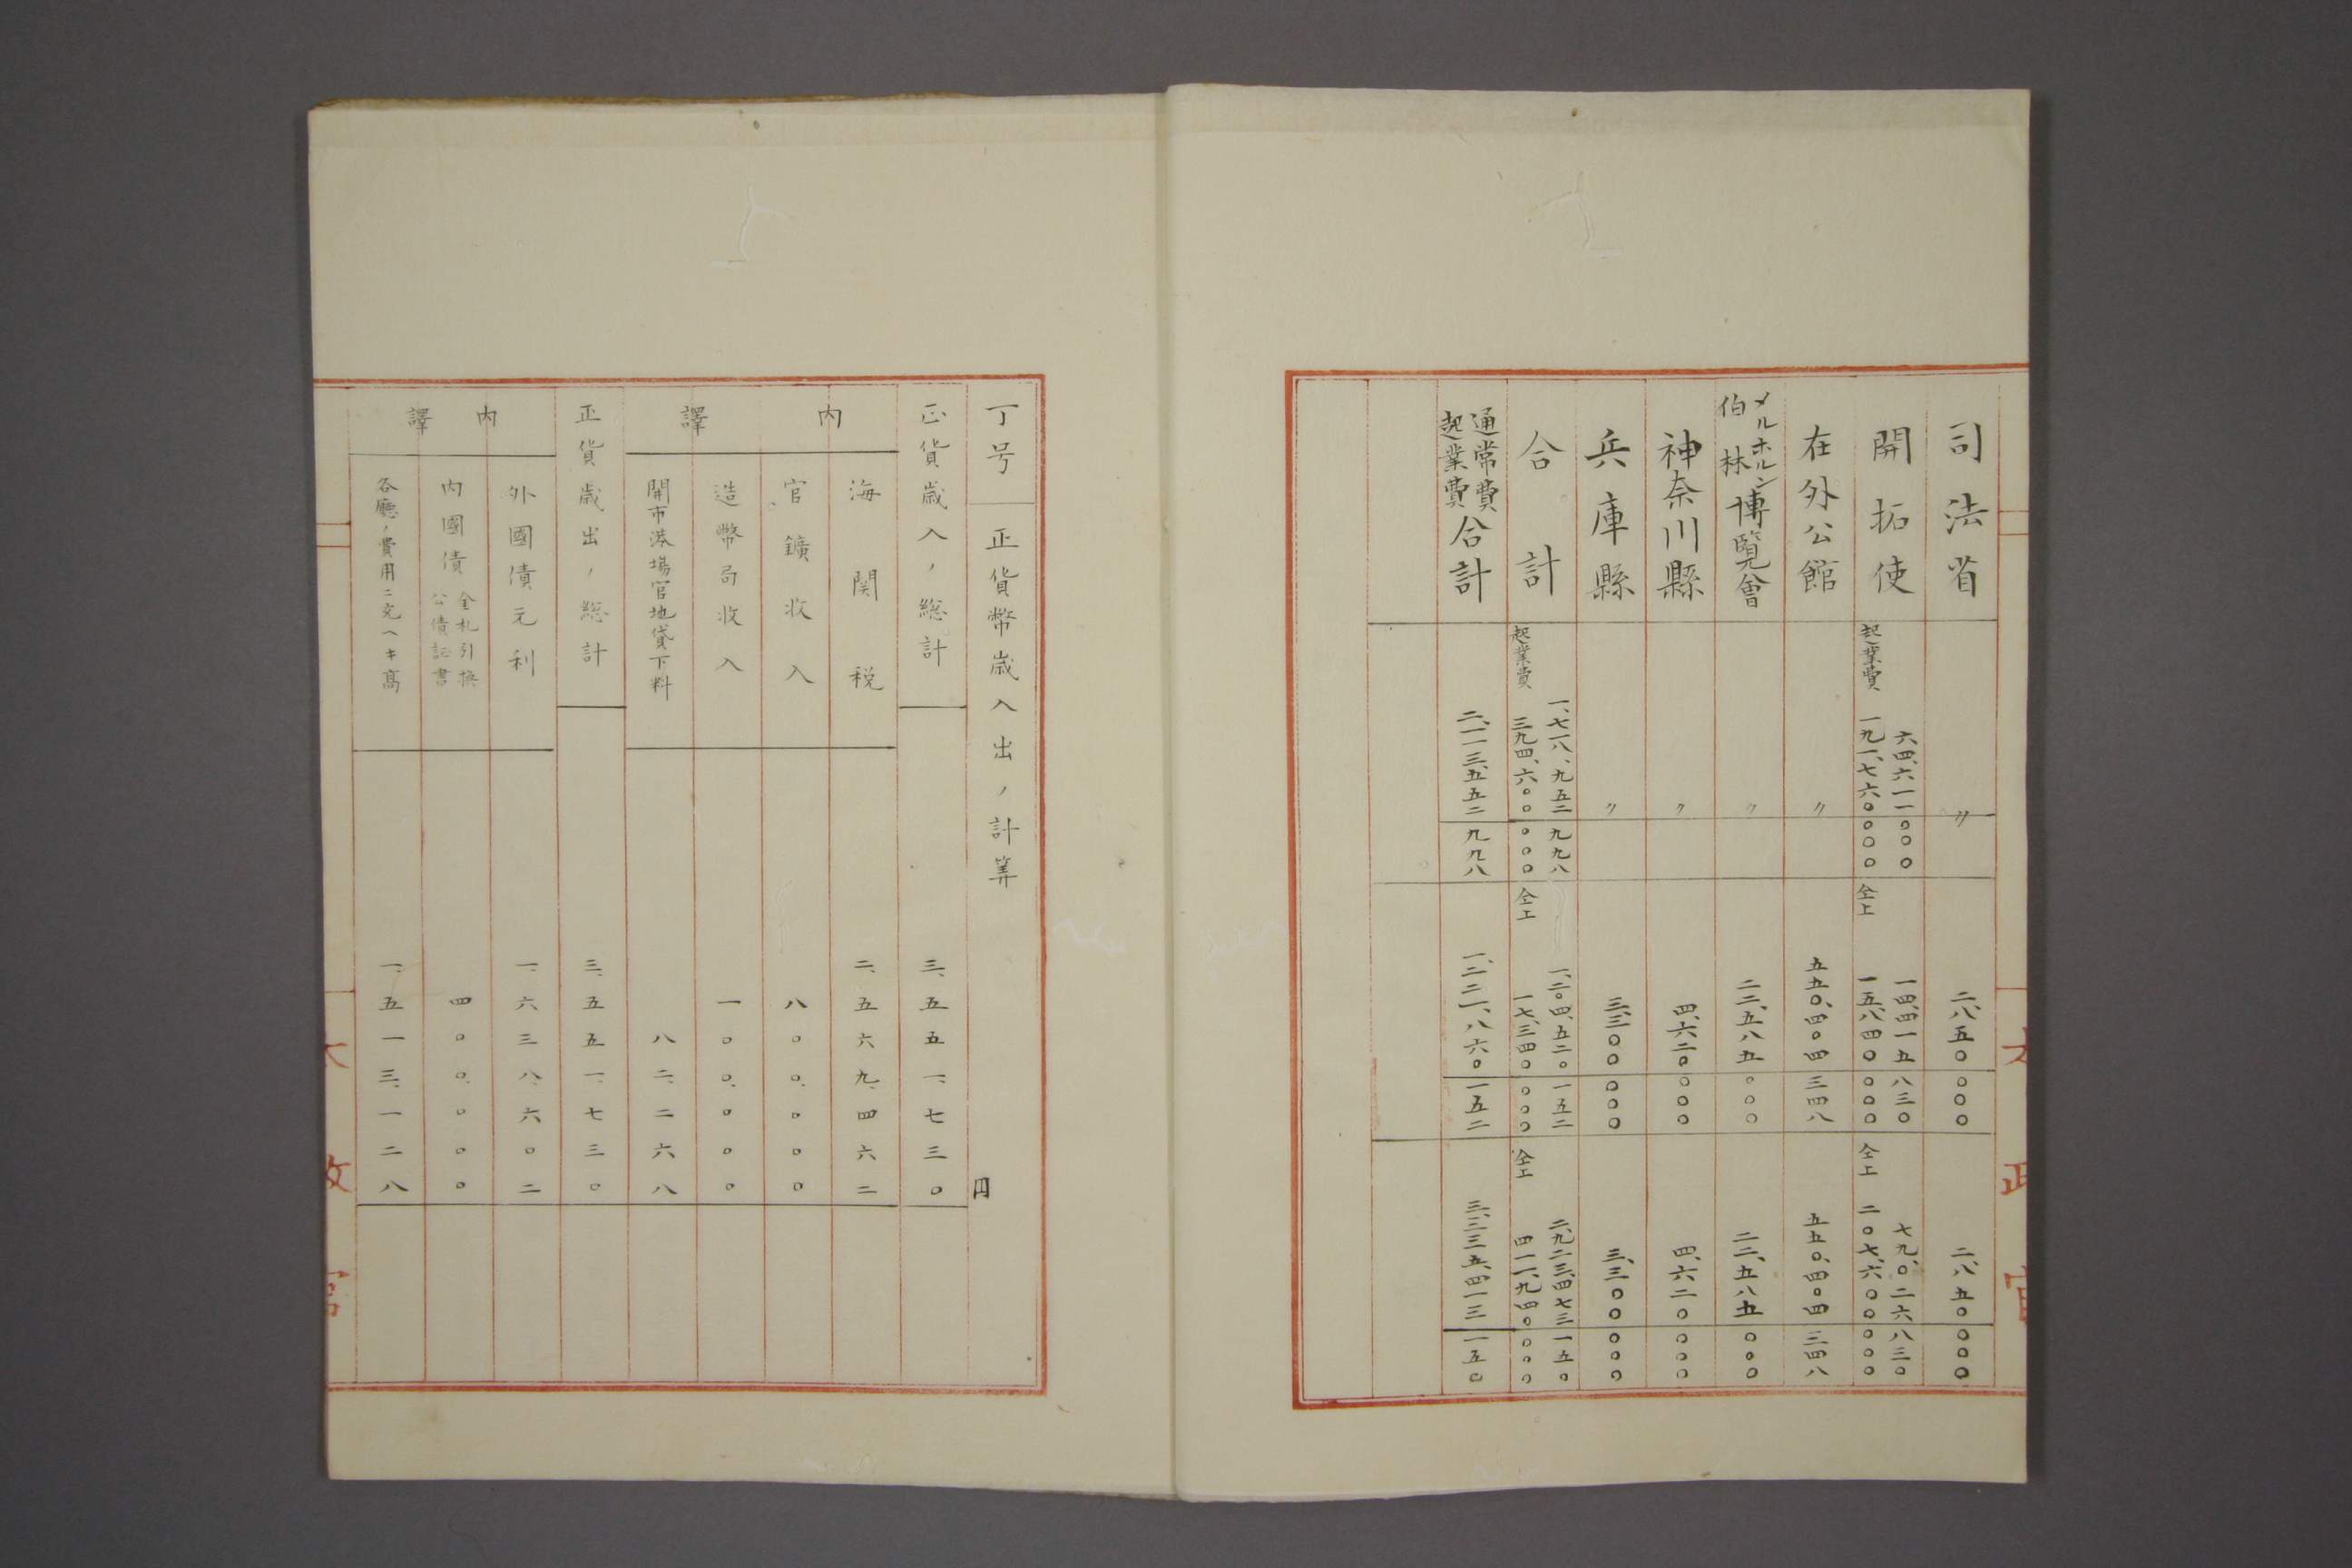 司法省 〃 二、八五〇 〇〇〇 二、八五〇 〇〇〇
開拓使 六四、六一一 〇〇〇 一四、四一五 八三〇 七九、〇二六 八三〇
起業費 一九一、七六〇 〇〇〇 仝上 一五、八四〇 〇〇〇 仝上 二〇七、六〇〇 〇〇〇
在外公館 〃 五五〇、四〇四 三四八 五五〇、四〇四 三四八
メルホルン
伯林
博覧會 〃 二二、五八五 〇〇〇 二二、五八五 〇〇〇
神奈川縣 〃 四、六二〇 〇〇〇 四、六二〇 〇〇〇
兵庫縣 〃 三、三〇〇 〇〇〇 三、三〇〇 〇〇〇
合計 一、七一八、九五二 九九八 一、二〇四、五二〇 一五二 二、九二三、四七三 一五〇
起業費 三九四、六〇〇 〇〇〇 仝上 一七、三四〇 〇〇〇 仝上 四一一、九四〇 〇〇〇
通常費
起業費
合計 二、一一三、五五二 九九八 一、二二一、八六〇 一五二 三、三三五、四一三 一五〇
太政官
丁号 正貨幣歳入出ノ計筭 円
正貨歳入ノ総計 三、五五一、七三〇
内譯
海関税 二、五六九、四六二
官鑛收入 八〇〇、〇〇〇
造幣局收入 一〇〇、〇〇〇
開市港場官地貸下料 八二、二六八
正貨歳出ノ総計 三、五五一、七三〇
内譯
外國債元利 一、六三八、六〇二
内國債 金札引換
公債証書 四〇〇、〇〇〇
各廳ノ費用ニ充ヘキ高 一、五一三、一二八
太政官